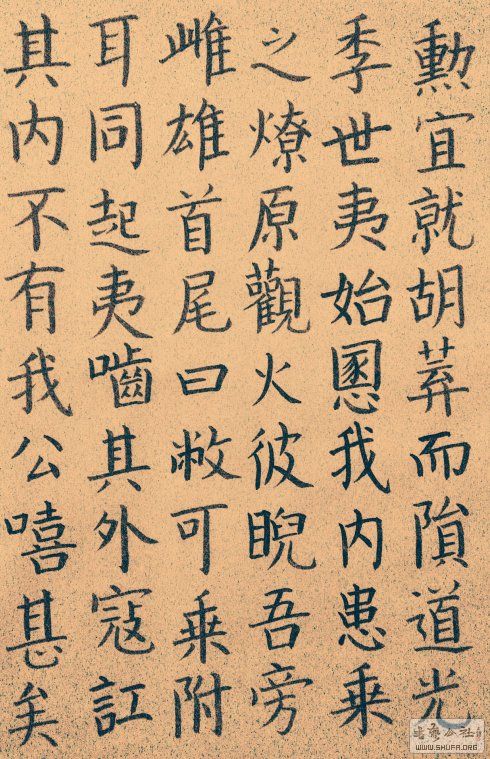 勳宜就胡莽而隕道光
季世夷始慁我内患乗
之燎原觀火彼睨吾旁
雌雄首尾曰敝可乗附
耳同起夷嚙其外寇訌
其内不有我公嘻甚矣
WWW.SHUFA.ORG